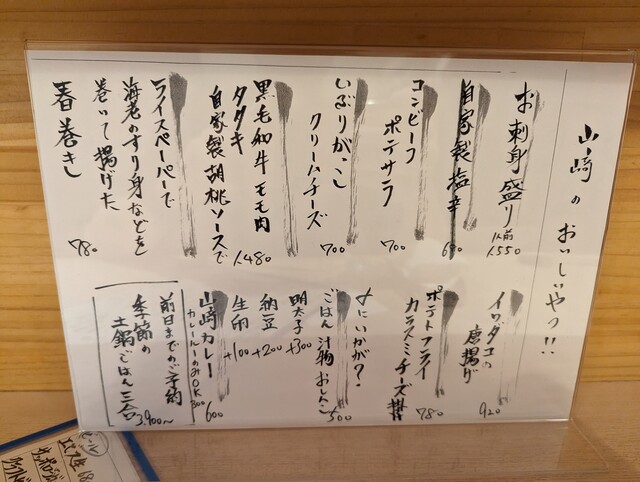 山﨑のおいしいやつ!!
お刺身盛り 1人前 1,550
自家製塩辛 600
コンビーフ
ポテサラ 700
いぶりがっこ
クリームチーズ 700
黒毛和牛モモ肉
タタキ
自家製胡桃ソースで 1,480
ライスペーパーで
海老のすり身などを
巻いて揚げた
春巻き 780
イワダコの
唐揚げ 920
ポテトフライ
カラスミチーズ 780
〆にいかが?
ごはん 汁物 おしんこ 500
明太子 +300
納豆 +200
生卵 +100
山﨑カレー 600
カレールーのみOK 300
前日までのご予約
季節の
土鍋ごはん 二合 3,900〜